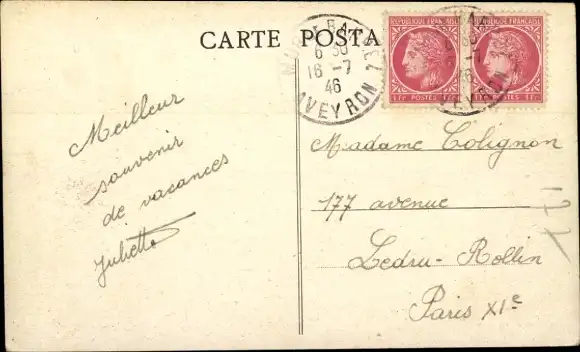 CARTE POSTA
6 30
16 -7
46
AVEYRON
RÉPUBLIQUE FRANÇAISE
1 Fr POSTES 1 Fr
RÉPUBLIQUE FRANÇAISE
Meilleur
souvenir
de vacances
Juliette
Madame Colignon
177 avenue
Ledru-Rollin
Paris XIe